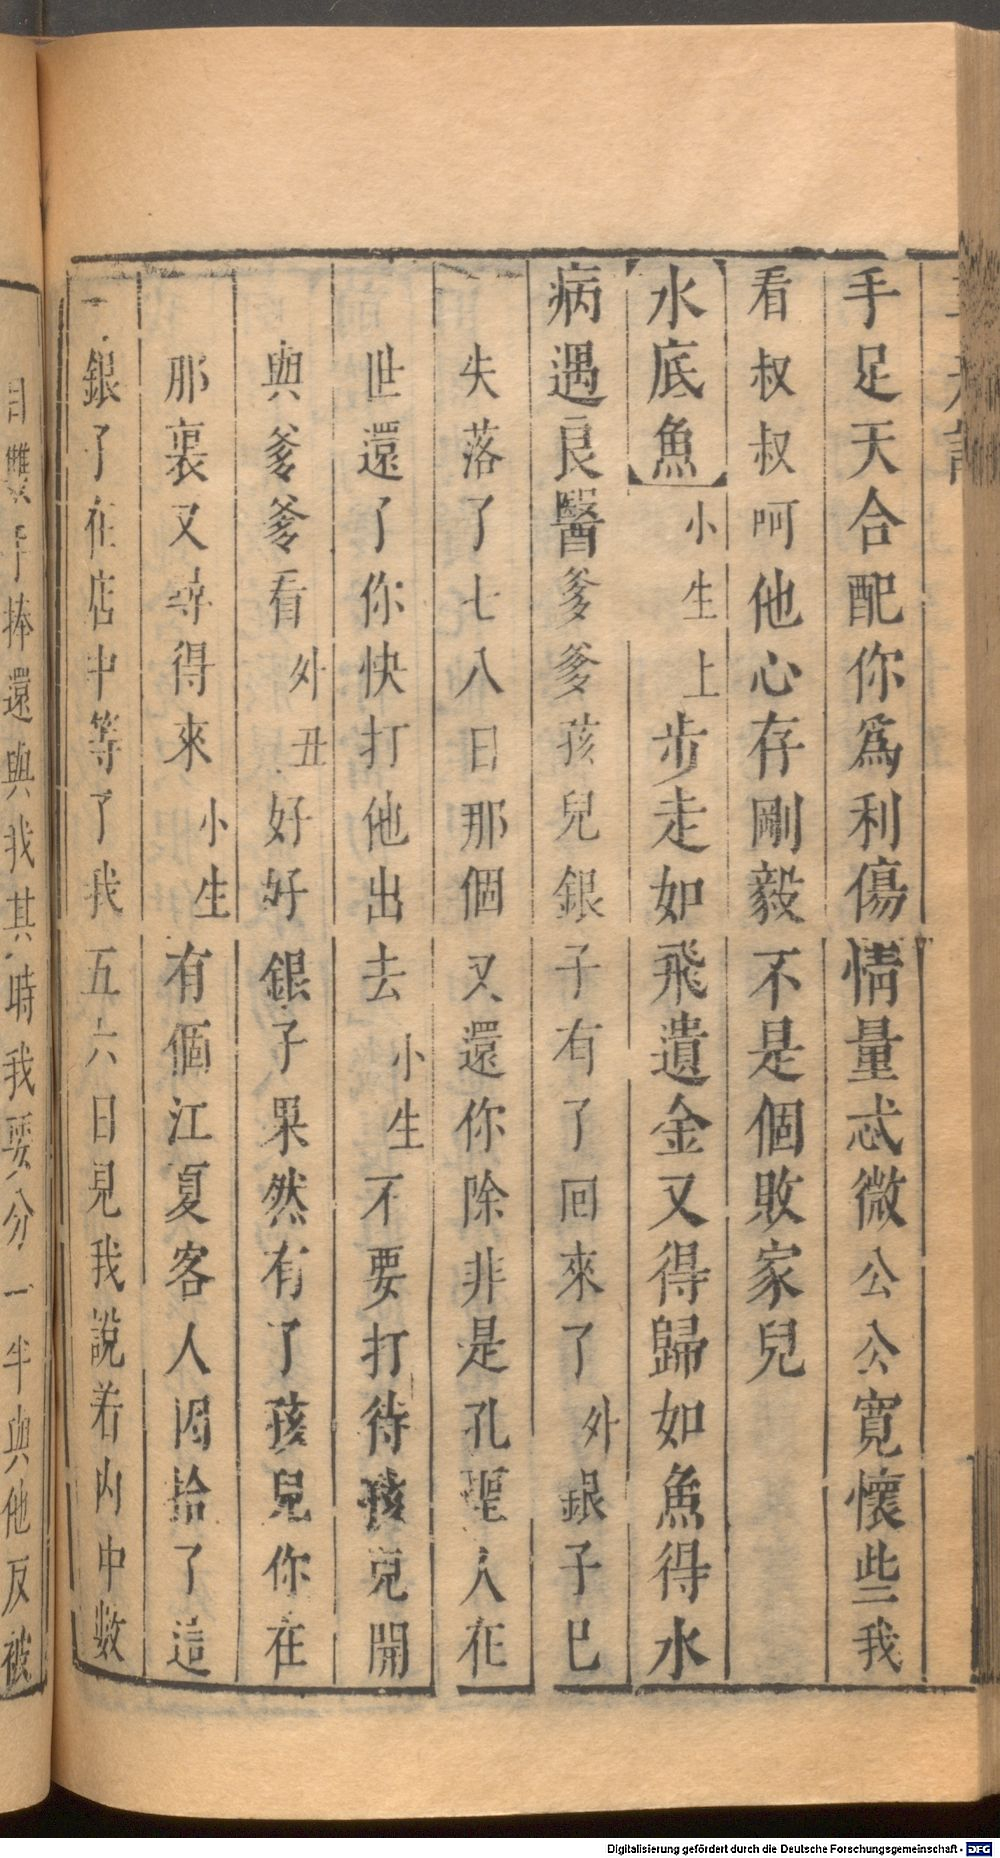 手足天合配你爲利傷情量忒微公公寬懷些我
看叔叔呵他心存剛毅不是個敗家兒
水底魚小生上步走如飛遺金又得歸如魚得水
病遇良醫爹爹孩兒銀子有了回來了外銀子已
失落了七八日那個又還你除非是孔聖人在
世還了你快打他出去小生不要打待孩兒開
與爹爹看外丑好好銀子果然有了孩兒你在
那裏又尋得來小生有個江夏客人因拾了這
銀了在店中等了我五六日見我說着內中數
目雙手捧還與我其時我要分一半與他反被
Digitalisierung gefördert durch die Deutsche Forschungsgemeinschaft - DFG